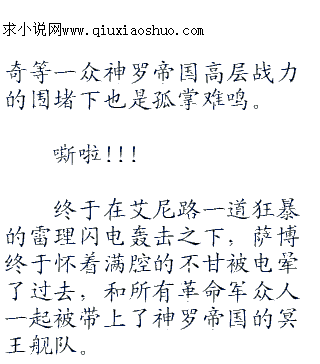 求小说网www.qiuxiaoshuo.com
奇等一众神罗帝国高层战力
的围堵下也是孤掌难鸣。
嘶啦!!!
终于在艾尼路一道狂暴
的雷理闪电轰击之下，萨博
终于怀着满腔的不甘被电晕
了过去，和所有革命军众人
一起被带上了神罗帝国的冥
王舰队。